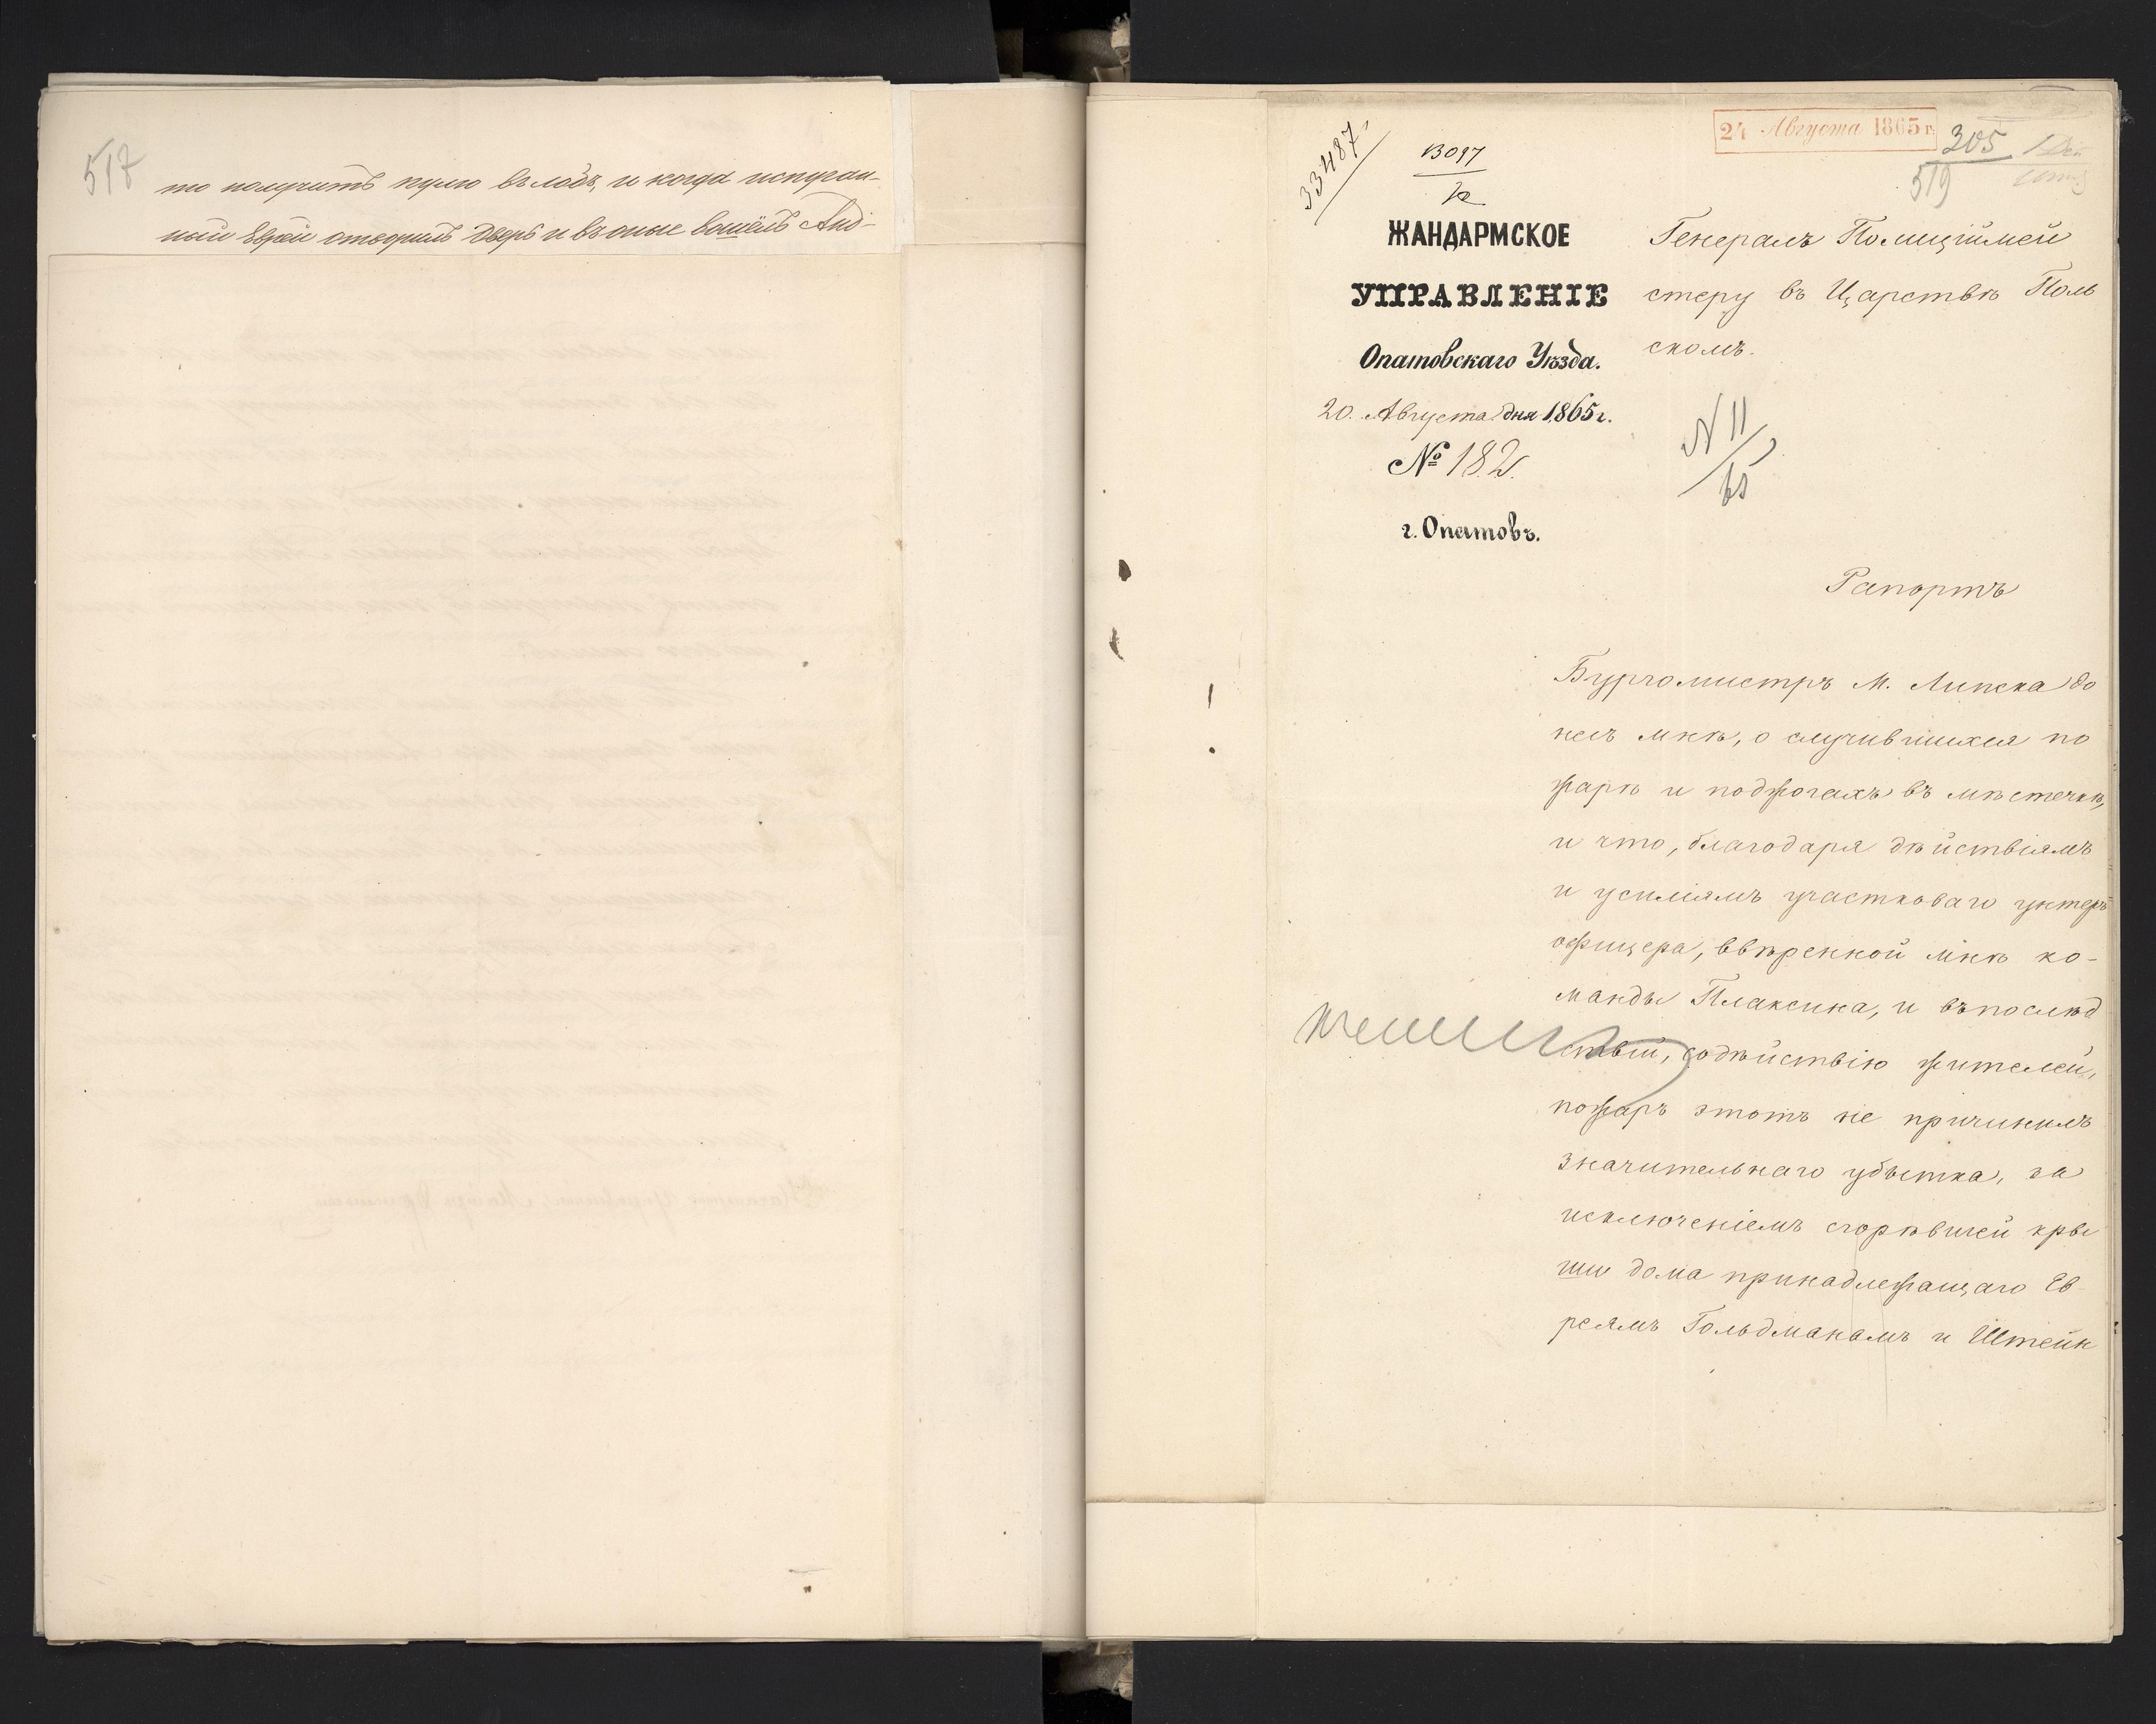 517
то получитъ пулю въ лобъ, и когда испуган-
ный Еврей отворилъ дверь и въ оные вошёлъ Анд-
24 Августа 1865 г.
305
519
33487
ЖАНДАРМСКОЕ
УПРАВЛЕНІЕ
Опатовскаго Уѣзда.
20. Августа дня 1865 г.
№ 182.
г. Опатовъ.
Генералъ Полиціймей
стеру въ Царствѣ Поль
скомъ.
N 11
65
Рапортъ
Бургомистръ М. Липска до
несъ мнѣ, о случившихся по
жарѣ и поджогахъ въ мѣстечкѣ,
и что, благодаря дѣйствіямъ
и усиліямъ участковаго унтеръ
офицера, ввѣренной мнѣ ко-
манды Плаксина, и въ послѣд
ствіи, содѣйствію жителей,
пожаръ этотъ не причинилъ
значительнаго убытка, за
исключеніемъ сгорѣвшей кры
ши дома принадлежащаго Ев
реямъ Гольдманамъ и Штейн